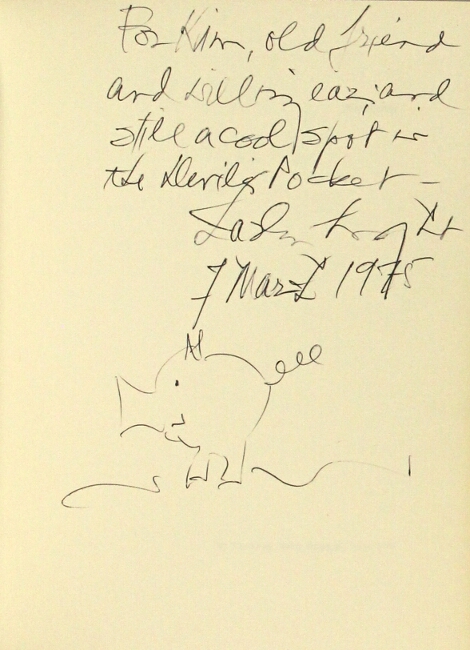 For Kim, old friend
and willing ear, and
still a cool spot in
the Devil's Pocket –
Etheridge Knight
7 March 1975